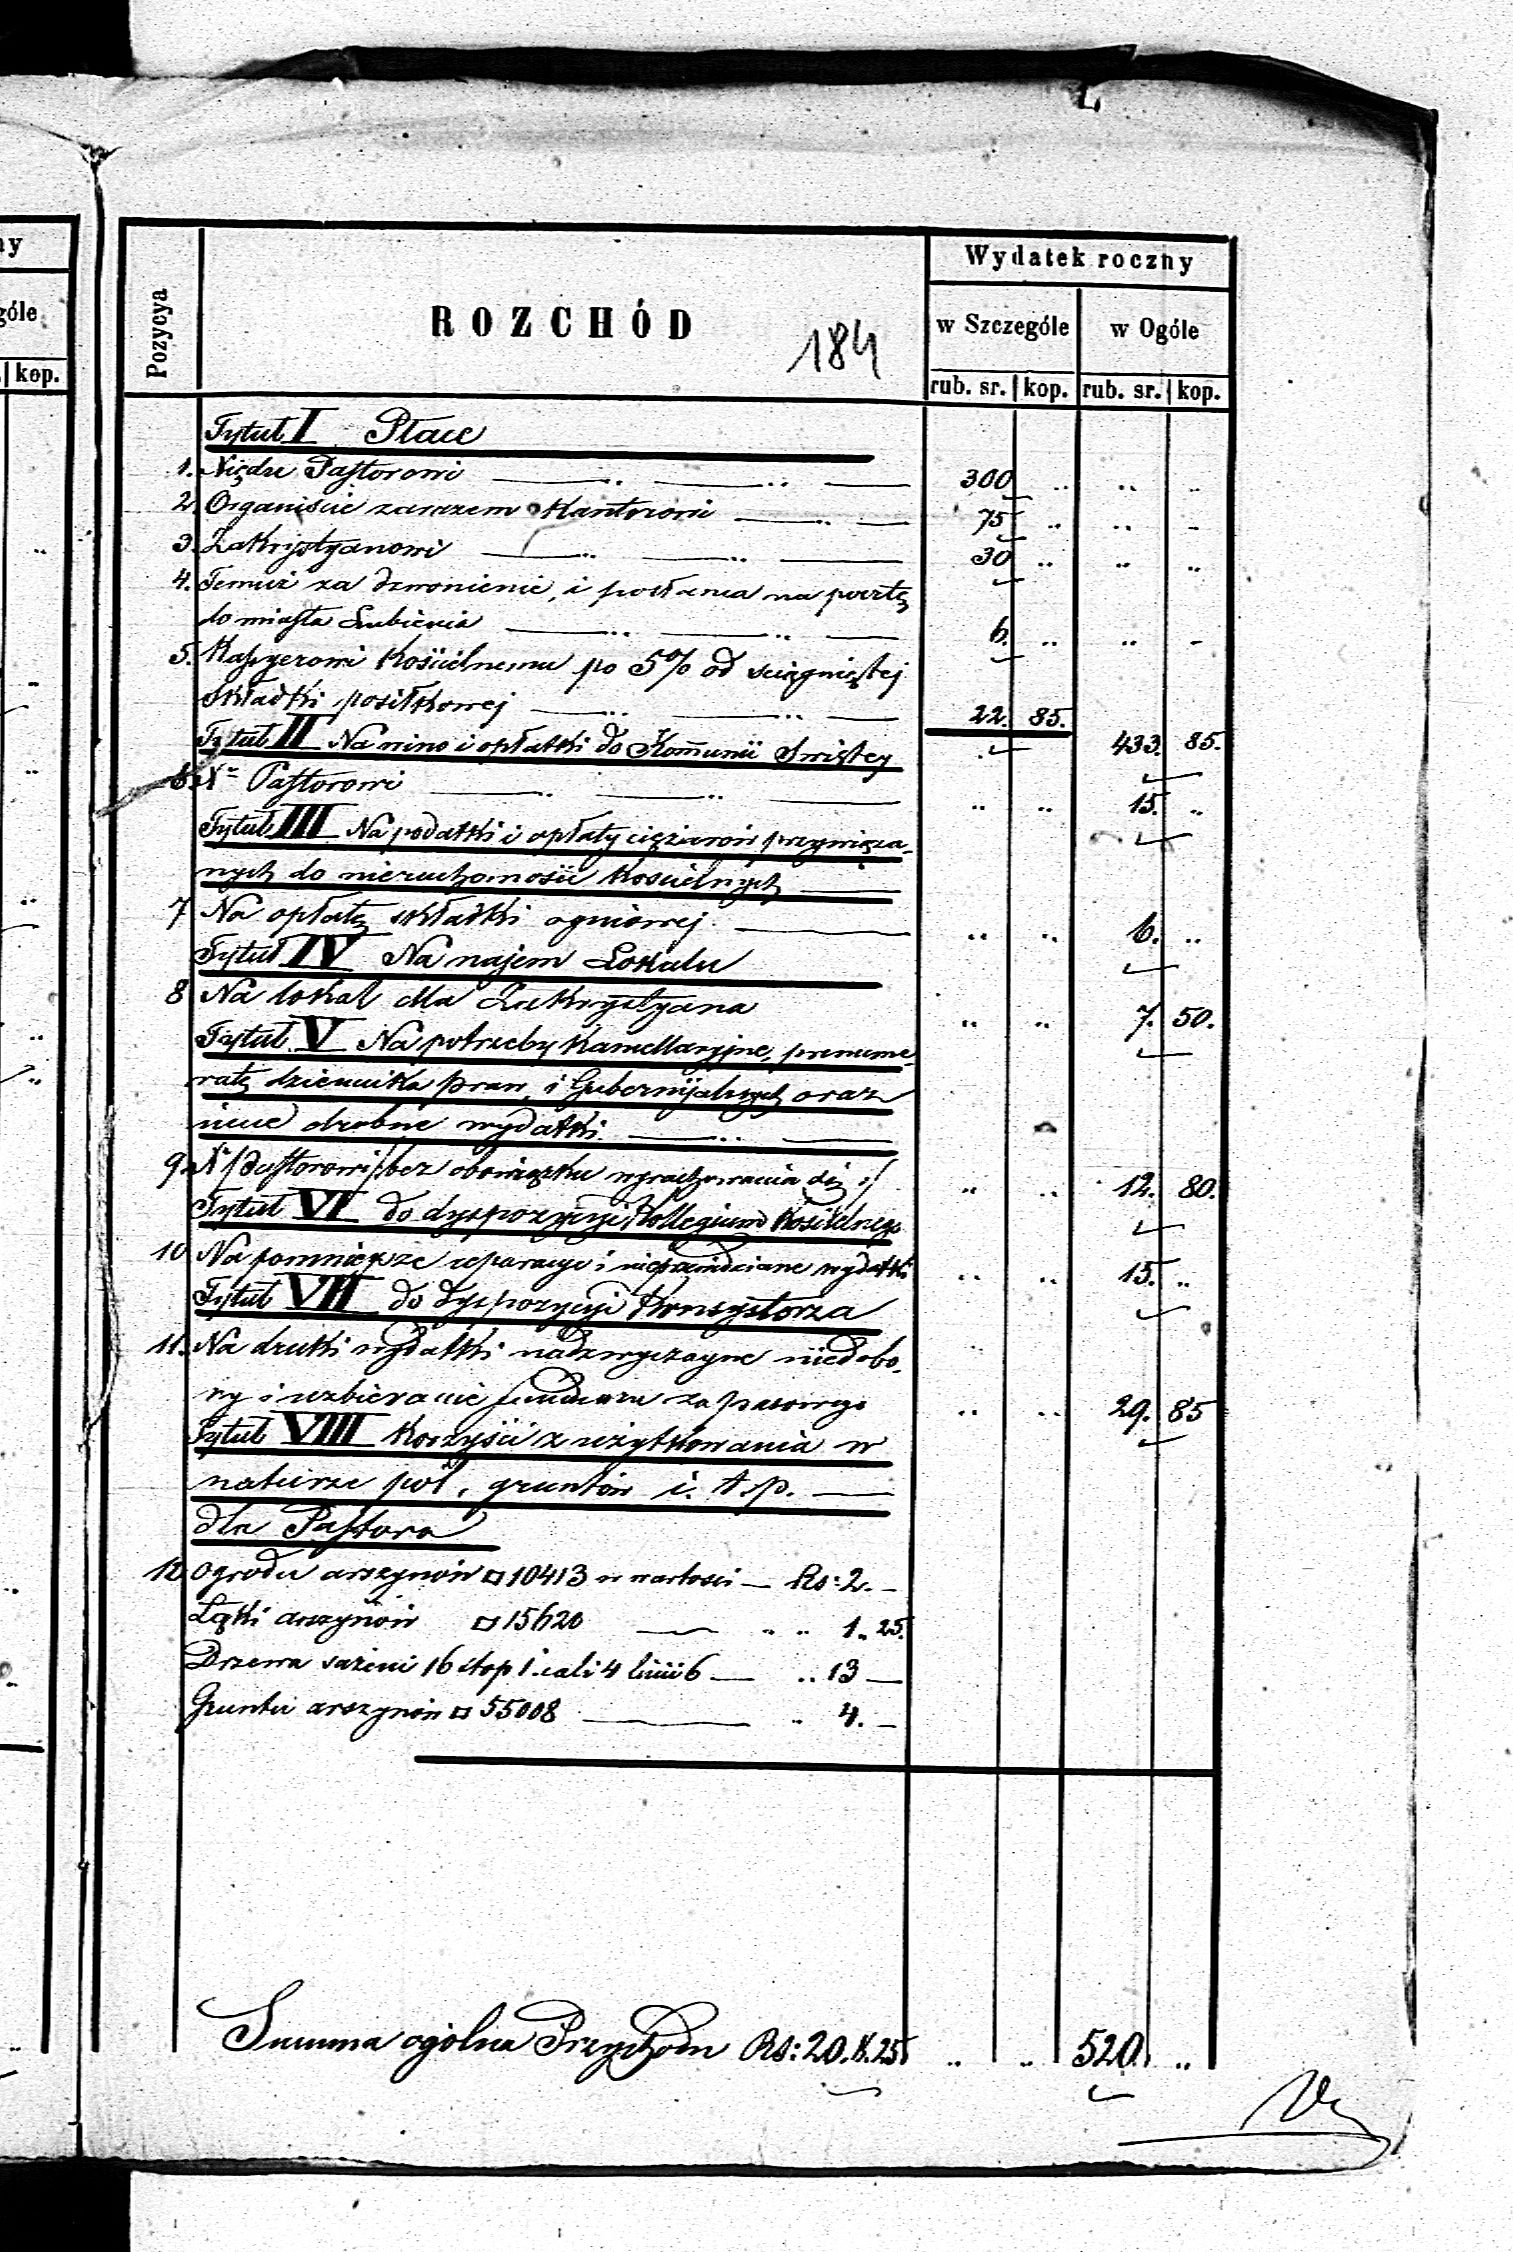 ny
góle
kop.
Pozycya
ROZCHÓD
184
Wydatek roczny
w Szczególe w Ogóle
rub. sr. kop. rub. sr. kop.
Tytuł I Płace
1. Xiędzu Pastorowi 300 " " "
2. Organiście zarazem Kantorowi 75 " " -
3. Zakrystyanowi 30 " " "
4. Temuż za dzwonienie, i posłania na pocztę
do miasta Lubienia 6. " " -
5. Kassyerowi Kościelnemu po 5% od ściągniętej
składki posiłkowej 22. 85.
Tytuł II Na wino i opłatki do Kommunii Swiętey 433. 85.
6. Xu Pastorowi " " 15. "
Tytuł III Na podatki i opłaty ciężarów przywiąza-
nych do nieruchomości Kościelnych
7 Na opłatę składki ogniowej " " 6. "
Tytuł IV Na najem Lokalu
8 Na lokal dla Zakrystyana " " 7. 50.
Tytuł V Na potrzeby Kancellaryjne, prenume-
ratę dziennika praw, i Gubernijalnych oraz
inne drobne wydatki
9. Xu Pastorowi /:bez obowiązku wyrachowania się :/ " " 12. 80.
Tytuł VI do dyspozycyi Kollegium Kościelnego
10 Na pomniejsze reparacye i nieprzewidziane wydatki " " 15. "
Tytuł VII do Dyspozycyi Konsystorza
11. Na druki wydatki nadzwyczayne niedobo-
ry i uzbieranie funduszu zapasowego " " 29. 85
Tytuł VIII Korzyści z użytkowania w
naturze pól, gruntów i. t. p.
dla Pastora
12 Ogrodu arszynów □ 10413 w wartości Rs: 2. -
Łąki arszynów □ 15620 " " 1. 25.
Drzewa sażeni 16 stop 1. cali 4 linii 6 " 13 -
Gruntu arszynów □ 55008 " 4. -
Summa ogólna Przychodu Rs: 20. k. 25 " " 520. "